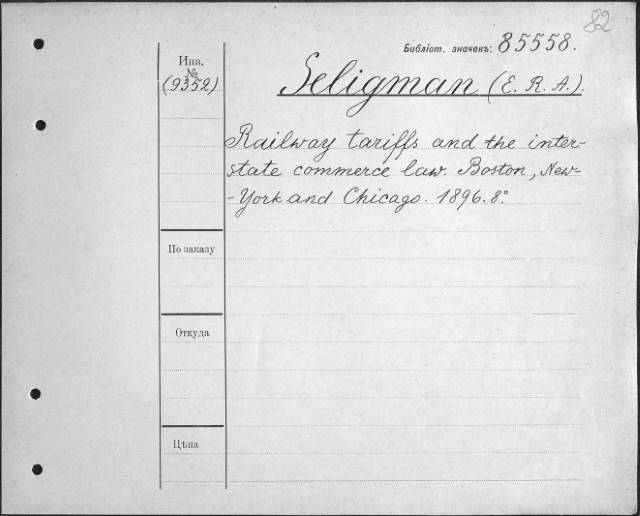 82
Библіот. значекъ: 85558.
Инв.
№
(9352)
Seligman (E. R. A.).
Railway tariffs and the inter-
state commerce law. Boston, New-
-York and Chicago. 1896. 8°
По заказу
Откуда
Цѣна